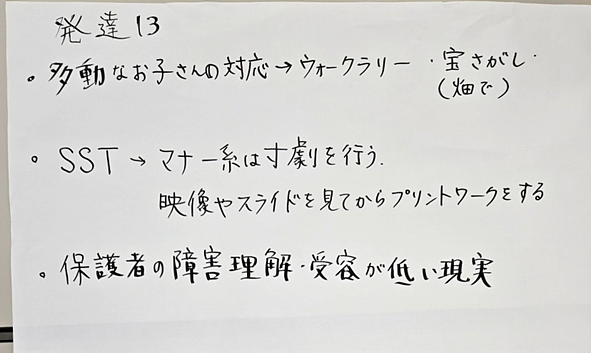 発達13
・多動なお子さんの対応→ウォークラリー ・宝さがし・
(畑で)
・SST→マナー系は寸劇を行う.
映像やスライドを見てからプリントワークをする
・保護者の障害理解・受容が低い現実